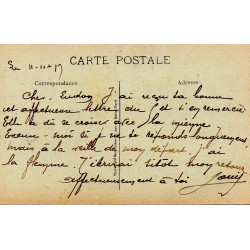 Le 11-111-17
CARTE POSTALE
Correspondance
Adresse
Cher J'ai reçu ta bonne
et affectueuse lettre du et t'en remercie
Elle a dû se croiser avec la mienne
moi si je ne te réponds longuement
mais à la veille de mon départ, j'ai
la flemme. J'écrirai sitôt mon retour
affectueusement à toi